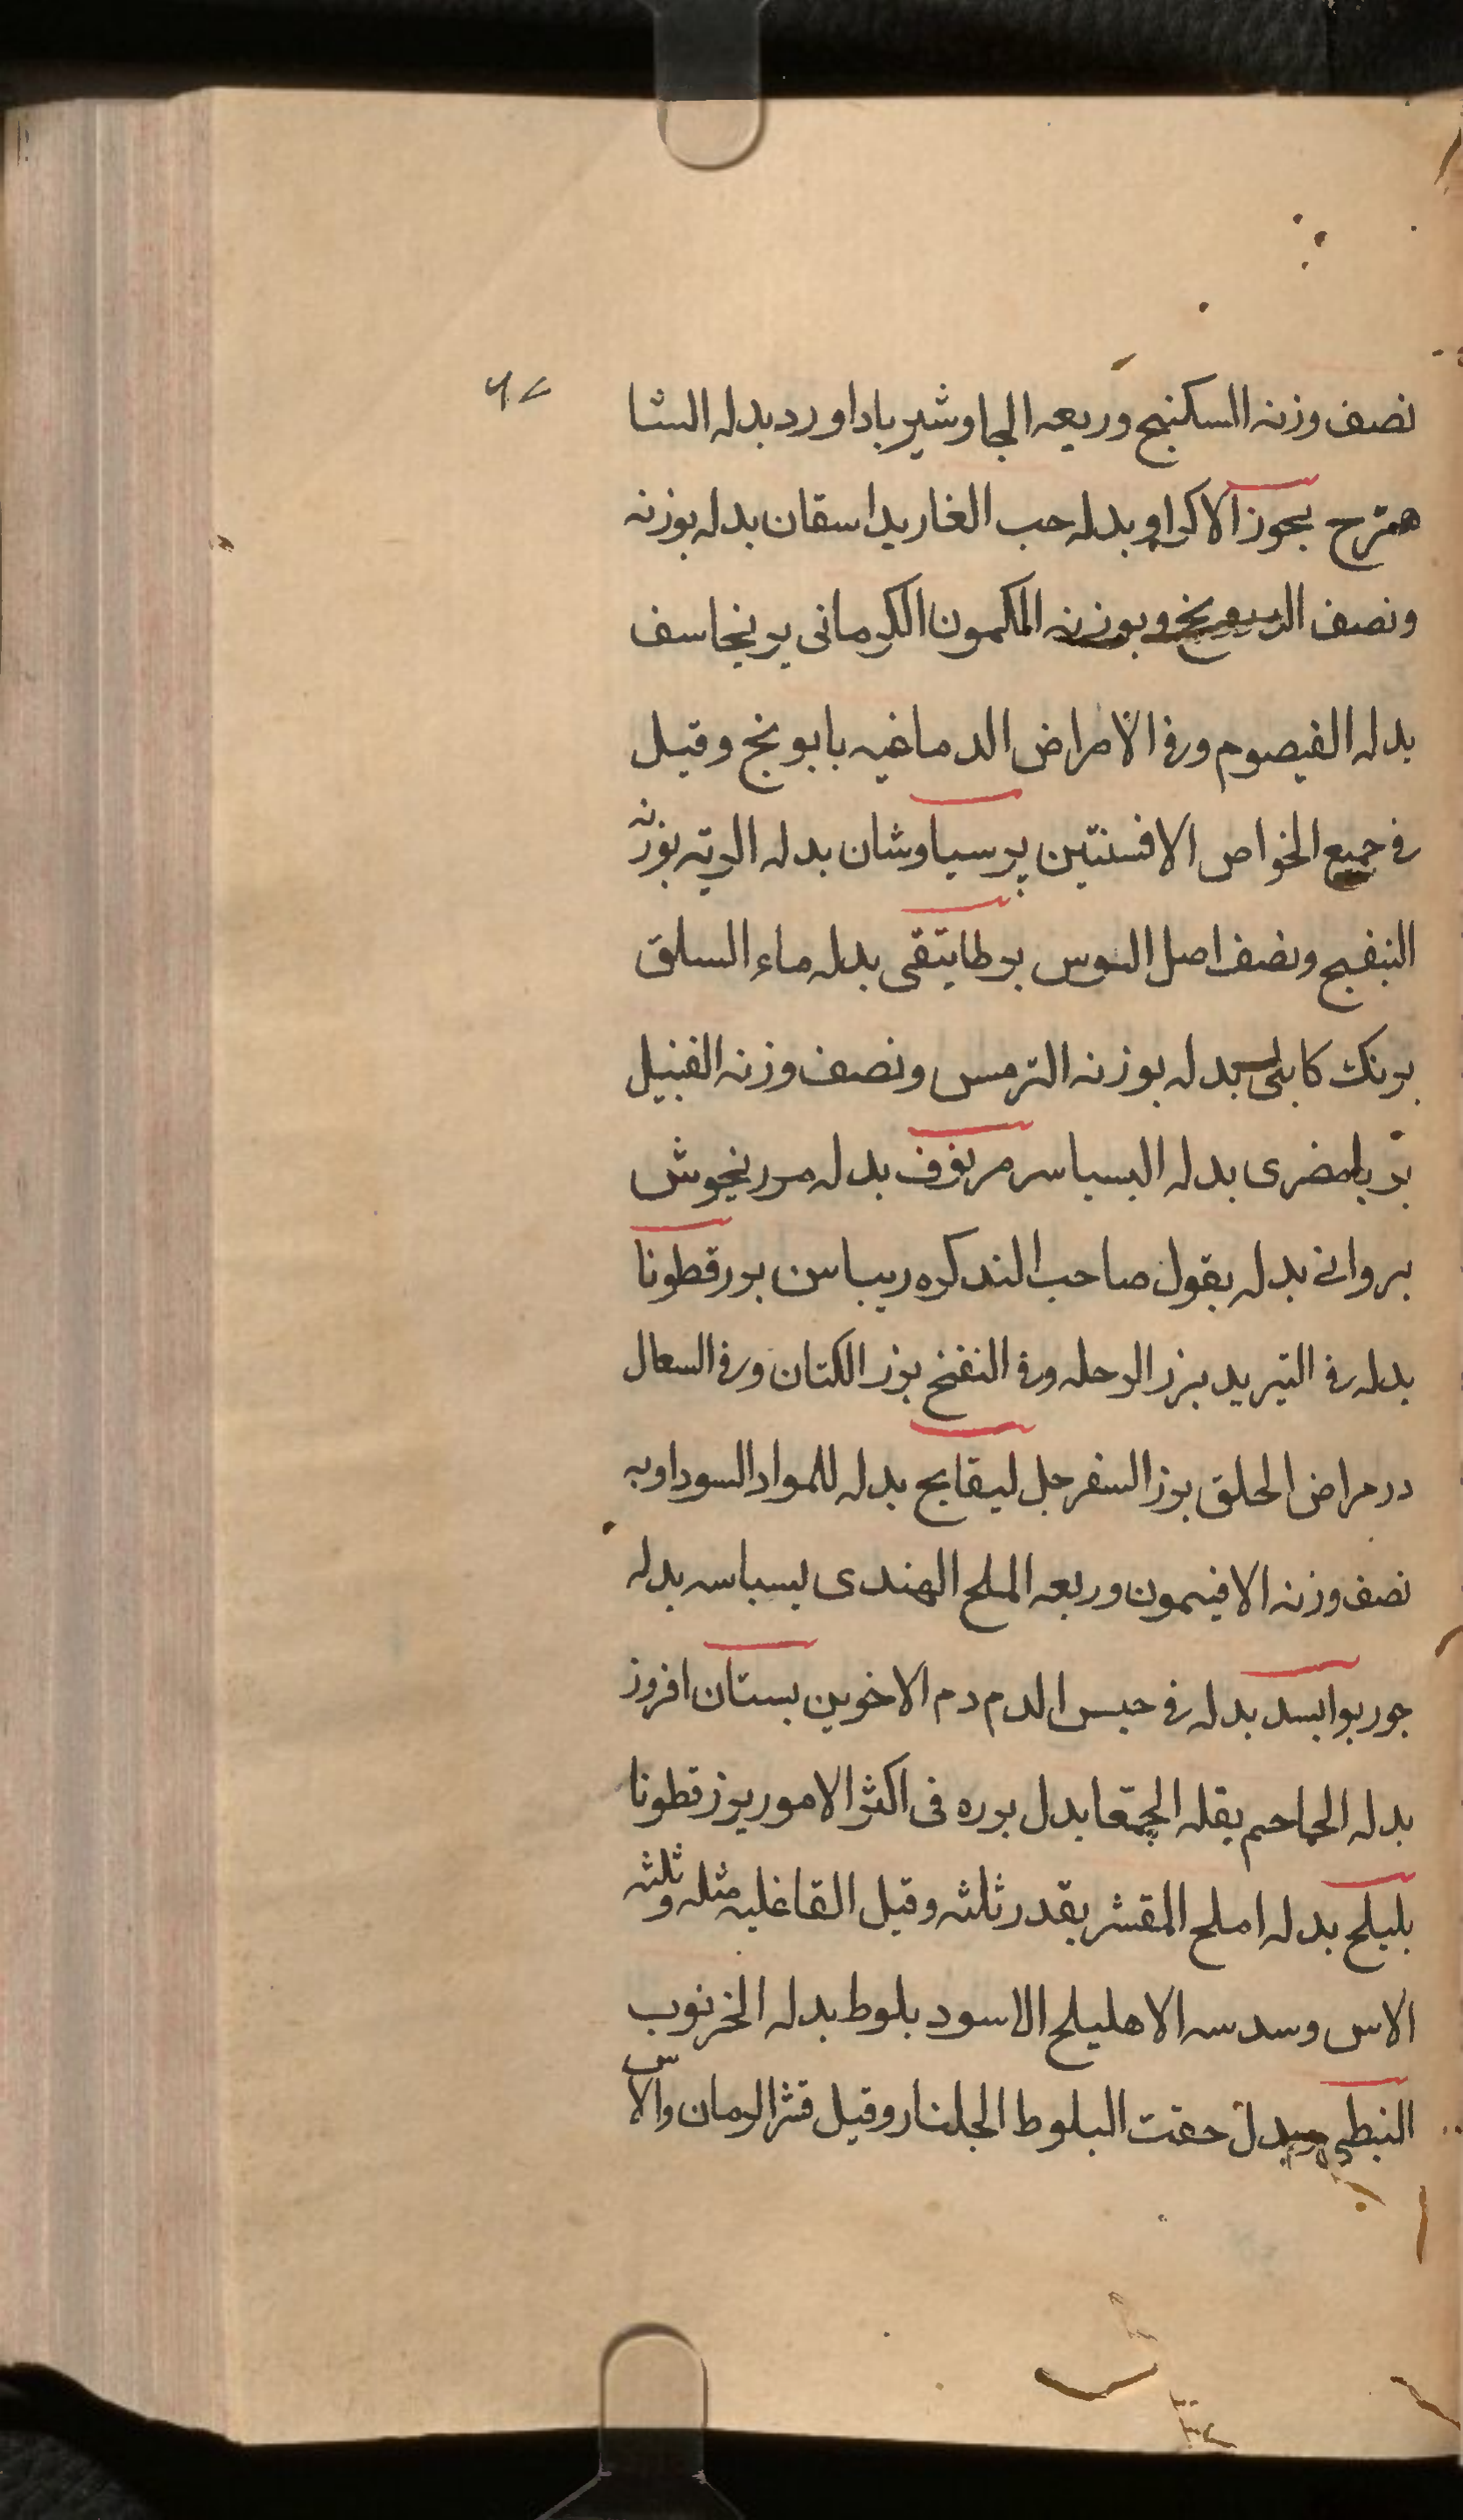 نصف وزنه السكنبج وربعه الجاوشير باداورد بدله الشا
همترح بجوز الاكراو بدله حب الغار بداسقان بدله بوزنه
ونصف وبوزنه المكمون الكرمانى برنجاسف
بدله القيصوم ورفى الامراض الدماغيه بابونج وقيل
فى جميع الخواص الافسنتين برسياوشان بدله الريه بوزنه
البنفسج ونصف اصل السوس برطانيقى بدله ماء السلق
برنك كابلى بدله بوزنه الترمس ونصف وزنه القنبيل
بدله البسباسه بدله مررنجوش
بروانى بدله بقول صاحب التذكره ريباس بزرقطونا
بدله فى التبريد بزر الرحله وفى النفخ بزر الكتان وفى السعال
درمراض الحلق بزر السفرجل بدله للمواد السوداويه
نصف وزنه الافيتمون وربعه الملح الهندى بسباسه بدله
جوربوا بسد بدله فى حبس الدم دم الاخوين بستان افروز
بدله الحماحم بقله الحمقا بدل بوره فى اكثر الامور بزرقطونا
بليلج بدله املج المقشر بقدر ثلثه وقيل القاغليه مثله وثلثه
الاس وسدسه الاهليلج الاسود بلوط بدله الخرنوب
النبطى بدل حفت البلوط الجلنار وقيل قشر الرمان والاس